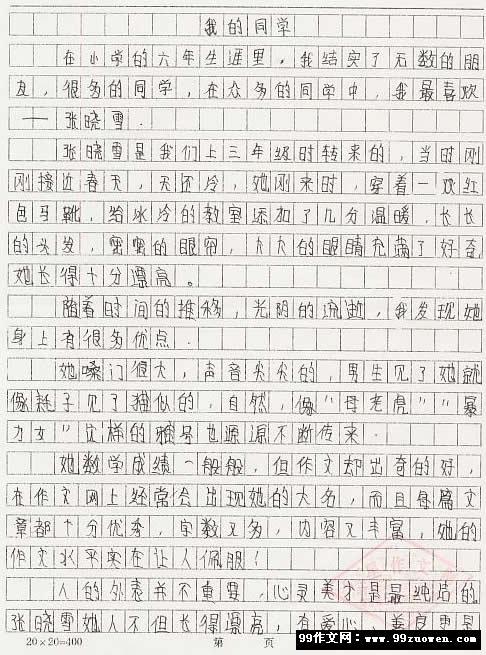 我的同学
在小学的六年生涯里，我结实了无数的朋
友，很多的同学，在众多的同学中，我最喜欢
——张晓雪．
张晓雪是我们上三年级时转来的，当时刚
刚接近春天，天还冷，她刚来时，穿着一双红
色马靴，给冰冷的教室添加了几分温暖，长长
的头发，密密的眼帘，大大的眼睛充满了好奇，
她长得十分漂亮。
随着时间的推移，光阴的流逝，我发现她
身上有很多优点．
她嗓门很大，声音尖尖的，男生见了她就
像耗子见了猫似的，自然，像“母老虎”“暴
力女”这样的雅号也源源不断传来．
她数学成绩一般般，但作文却出奇的好，
在作文网上经常会出现她的大名，而且每篇文
章都十分优秀，字数又多，内容又丰富，她的
作文水平实在让人佩服！
人的外表并不重要，心灵美才是最纯洁的
张晓雪她人不但长得漂亮，有爱心，善良更是
20×20=400 第 页
99作文网：www.99zuowen.com